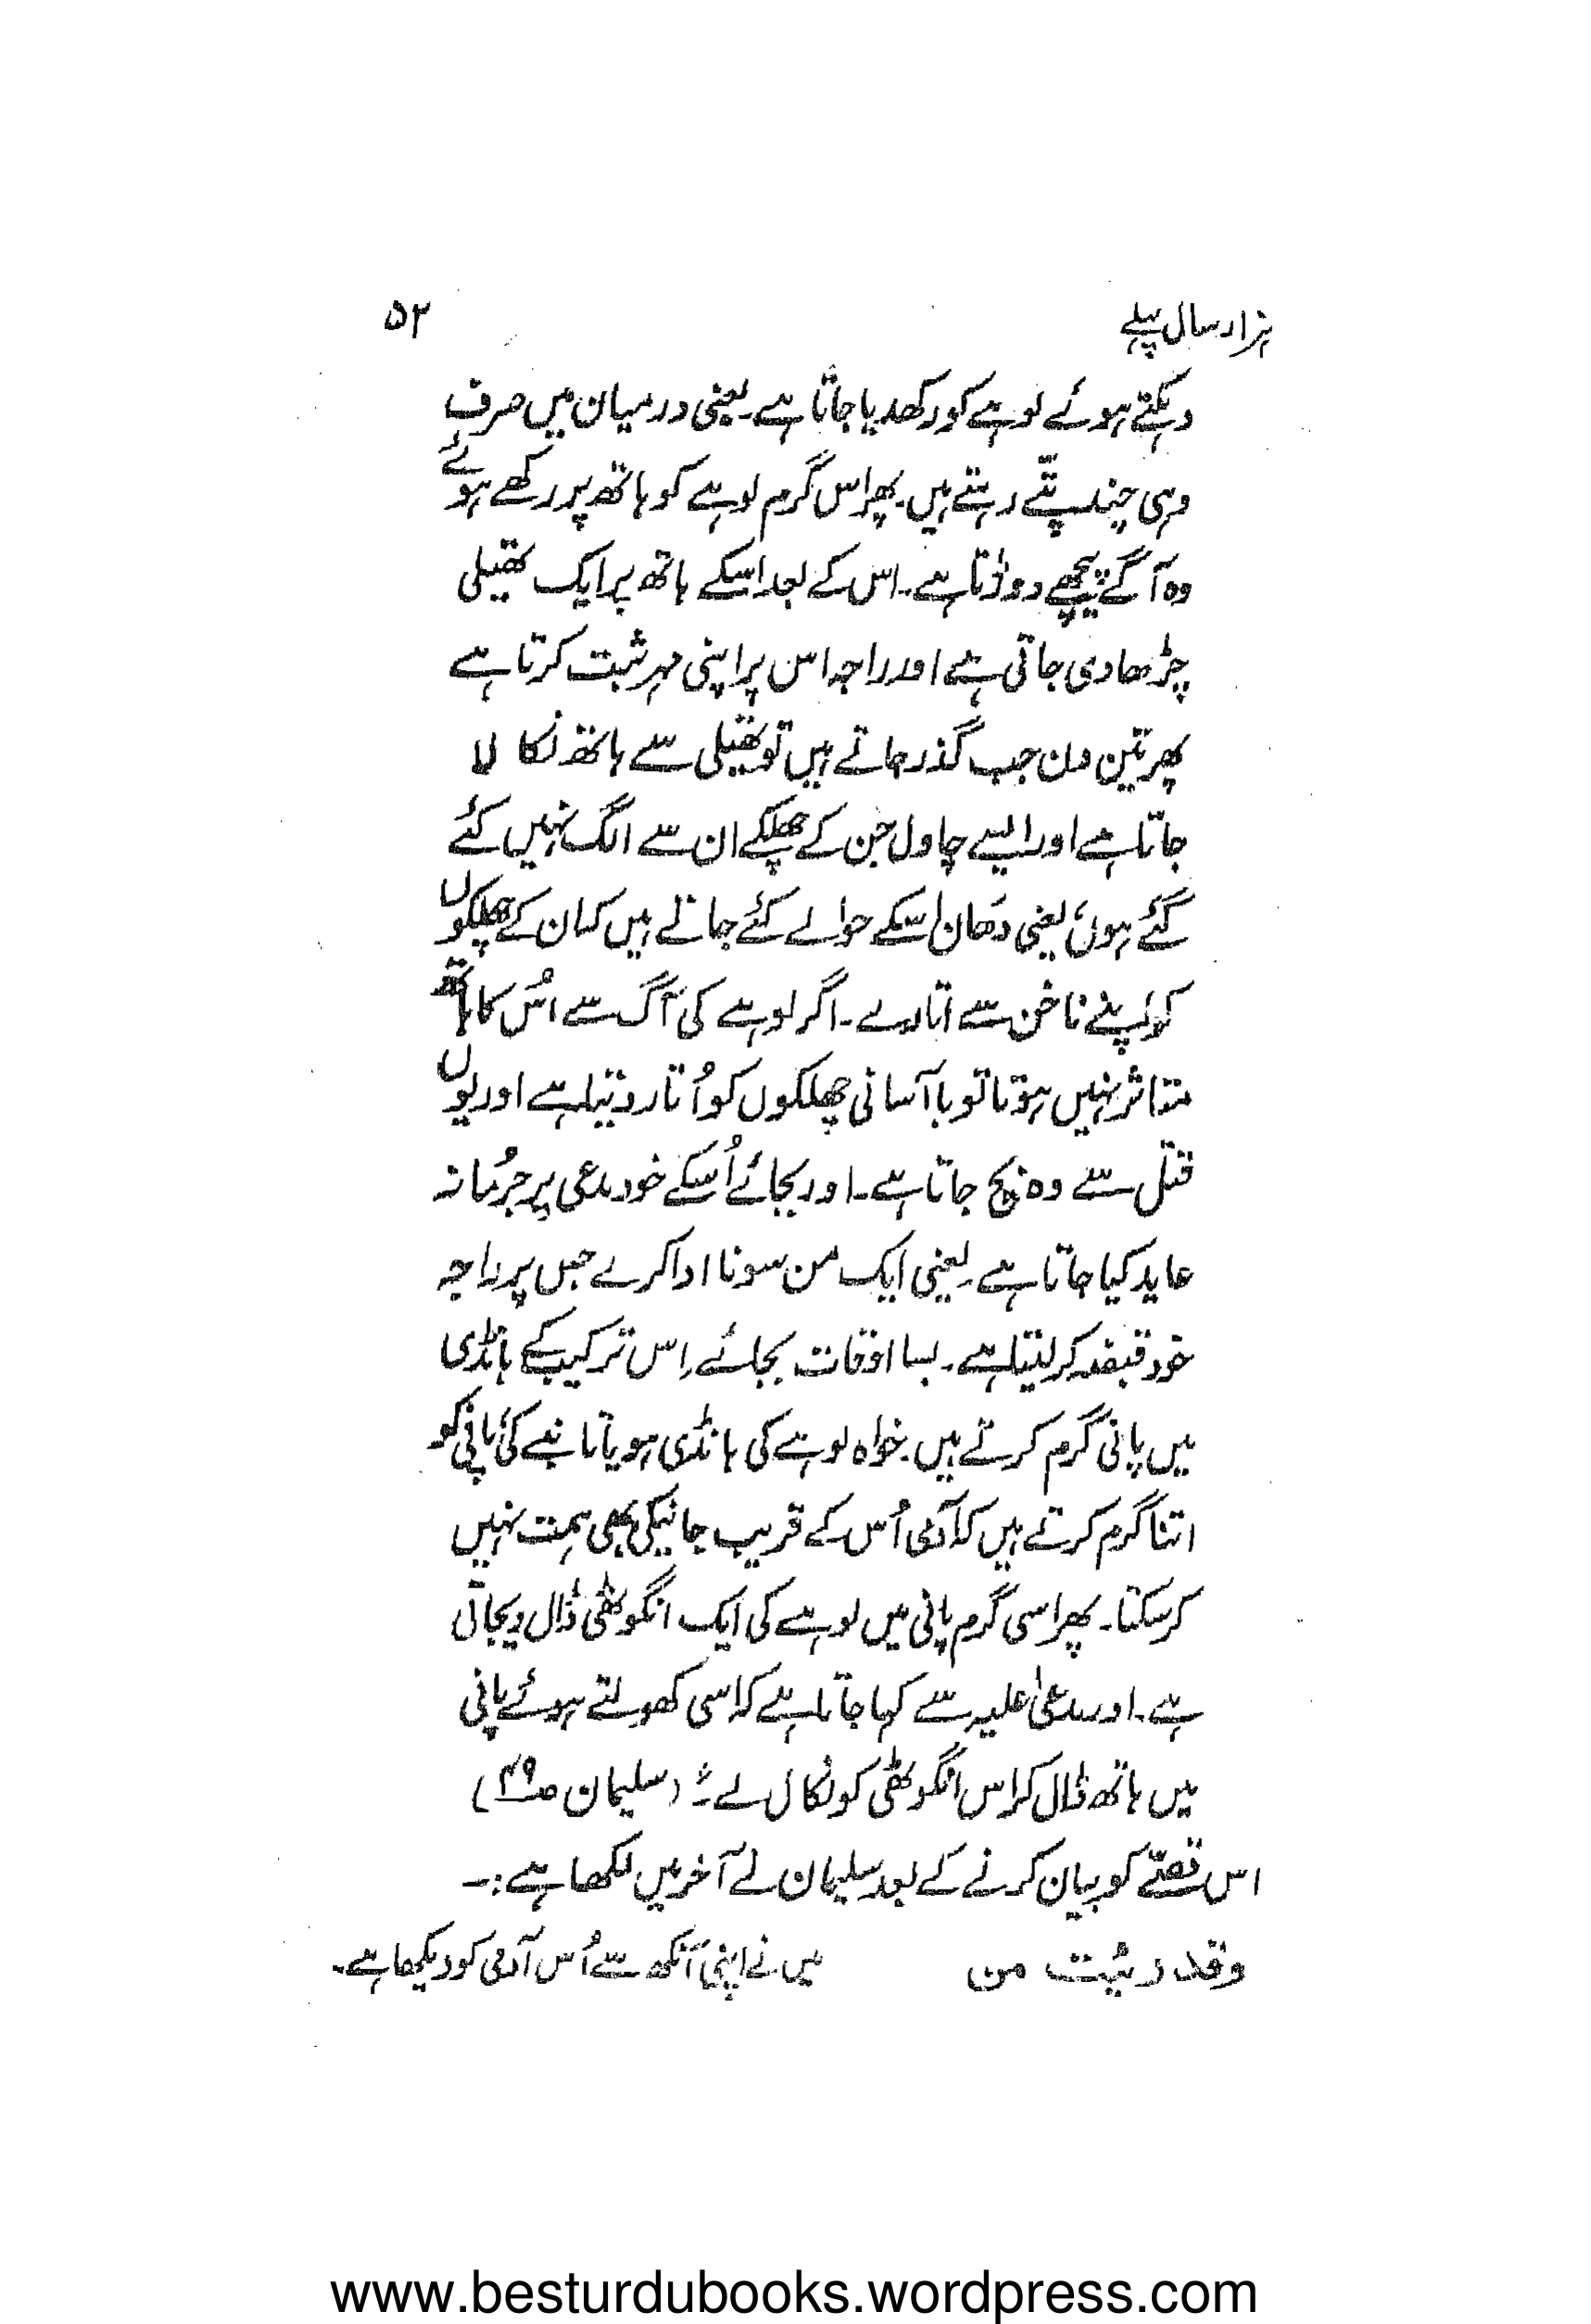 ہزار سال پہلے ۵۲
دہکتے ہوئے لوہے کو رکھدیا جاتا ہے۔ یعنی درمیان میں صرف
وہی چند پتّے رہتے ہیں۔ پھر اس گرم لوہے کو ہاتھ پر رکھے ہوئے
وہ آگے پیچھے دوڑتا ہے۔ اس کے بعد اسکے ہاتھ پر ایک تھیلی
چڑھا دی جاتی ہے اور راجہ اس پر اپنی مہر ثبت کرتا ہے
پھر تین دن جب گذر جاتے ہیں تو تھیلی سے ہاتھ نکا لا
جاتا ہے اور ایسے چاول جن کے چھلکے ان سے الگ نہیں کئے
گئے ہوں، یعنی دَھان اسکے حوالے کئے جاتے ہیں کہ ان کے چھلکوں
کو اپنے ناخن سے اتارے۔ اگر لوہے کی آگ سے اُس کا ہاتھ
متاثر نہیں ہوتا تو با آسانی چھلکوں کو اُتار دیتا ہے اور یوں
قتل سے وہ بچ جاتا ہے۔ اور بجائے اُسکے خود مدعی پر جُرمانہ
عاید کیا جاتا ہے۔ یعنی ایک من سونا ادا کرے جس پر راجہ
خود قبضہ کر لیتا ہے۔ بسا اوقات بجائے اِس ترکیب کے ہانڈی
میں پانی گرم کرتے ہیں۔ خواہ لوہے کی ہانڈی ہو یا تانبے کی، پانی کو
اتنا گرم کرتے ہیں کہ آدمی اُس کے قریب جانیکی بھی ہمت نہیں
کر سکتا۔ پھر اسی گرم پانی میں لوہے کی ایک انگوٹھی ڈال دیجاتی
ہے۔ اور مدعیٰ علیہ سے کہا جاتا ہے کہ اسی کھولتے ہوئے پانی
میں ہاتھ ڈال کر اس انگوٹھی کو نکال لے۔" (سلیمان صـ ۴۹)
اس قصّے کو بیان کرنے کے بعد سلیمان نے آخر میں لکھا ہے:۔
وقد رئیت من میں نے اپنی آنکھ سے اُس آدمی کو دیکھا ہے۔
www.besturdubooks.wordpress.com